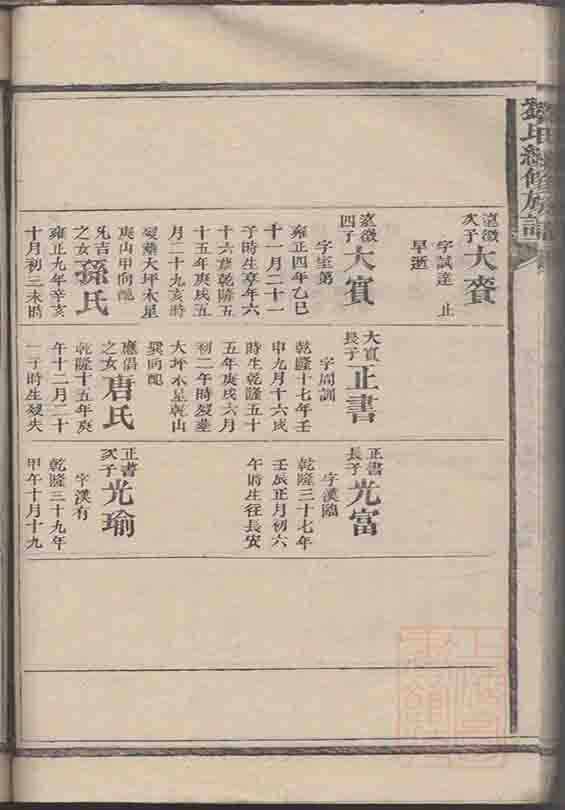 修族譜
遠徵
次子
大賚
字試達 止
早逝
遠徵
四子
大實
字室第
雍正四年乙巳
十一月二十一
子時生享年六
十六歲乾隆五
十五年庚戌五
月二十九亥時
歿葬大坪木星
庚山甲向配
兄吉
之女
孫氏
雍正九年辛亥
十月初三未時
大實
長子
正書
字周訓
乾隆十七年壬
申九月十六戌
時生乾隆五十
五年庚戌六月
初二午時歿葬
大坪水星乾山
巽向配
應倡
之女
唐氏
乾隆十五年庚
午十二月二十
一子時生歿失
正書
長子
光富
字漢臨
乾隆三十七年
壬辰正月初六
午時生往長安
正書
次子
光瑜
字漢有
乾隆三十九年
甲午十月十九